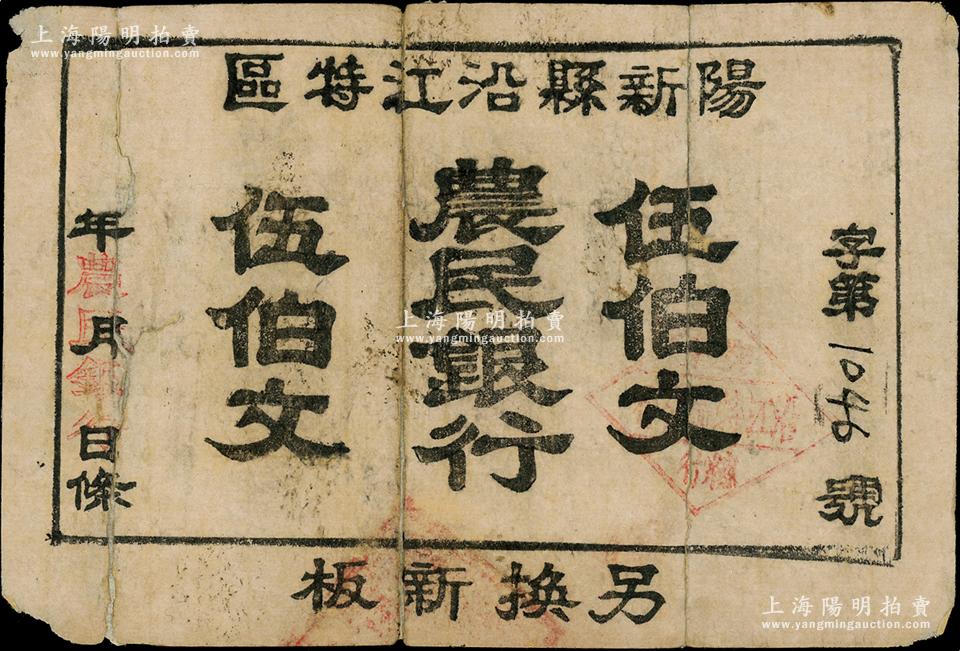 上海陽明拍賣
www.yangmingauction.com
陽新縣沿江特區
字第10 號
伍伯文
農民銀行
伍伯文
年 月 日條
農民銀行
另換新板
上海陽明拍賣
www.yangmingauction.com
上海陽明拍賣
www.yangmingauction.com